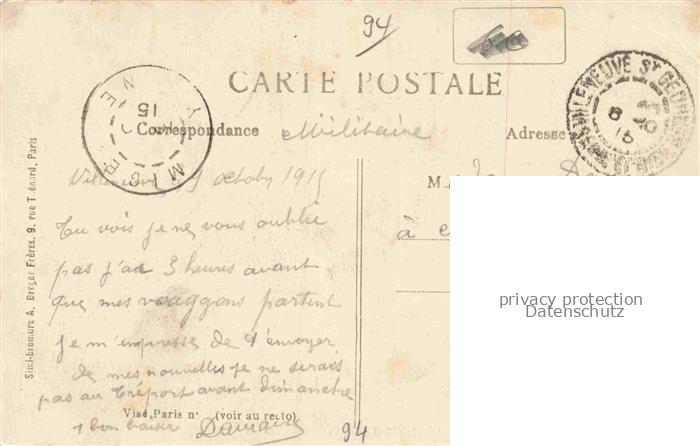 94
CARTE POSTALE
Correspondance Militaire
Adresse
VILLENEUVE ST GEORGES
15
Villeneuve, 9 octobr 1915
M
Tu vois je ne vous oublie
à
pas j'ai 3 heures avant
que mes waggons partent
je m'empresse de t'envoyer
de mes nouvelles je ne serais
pas au Tréport avant dimanche
1 bon baiser Damaire
Visé Paris n° (voir au recto)
94
Simi-bromure A. Breger Frères, 9, rue Thénard, Paris
privacy protection
Datenschutz